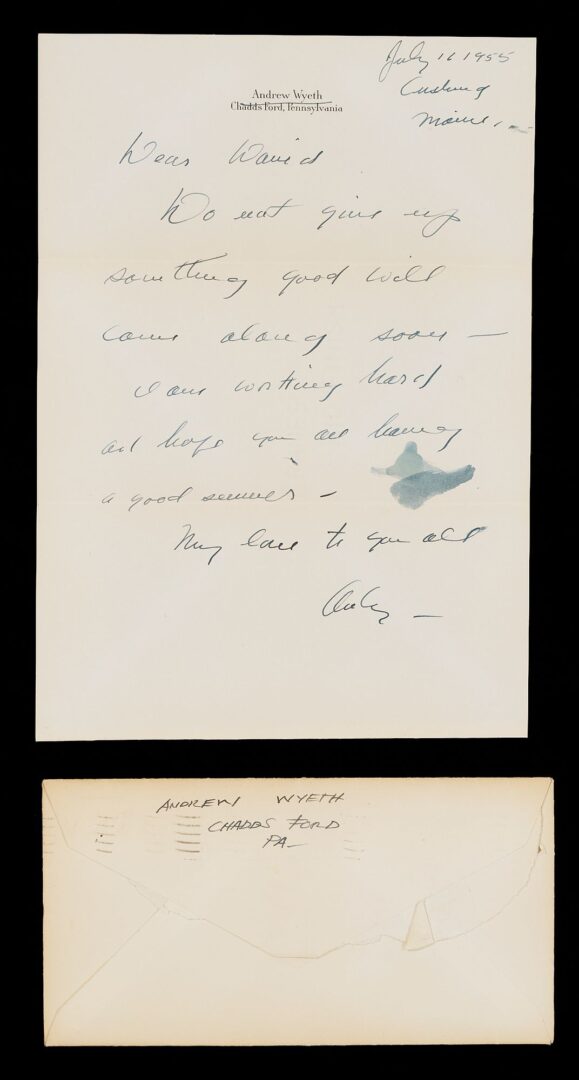 July 11 1955
Cushing
Maine,
Andrew Wyeth
Chadds Ford, Pennsylvania
Dear David
Do not give up
something good will
come along soon —
I am working hard
and hope you are having
a good summer –
My love to you all
Andy —
ANDREW WYETH
CHADDS FORD
PA—